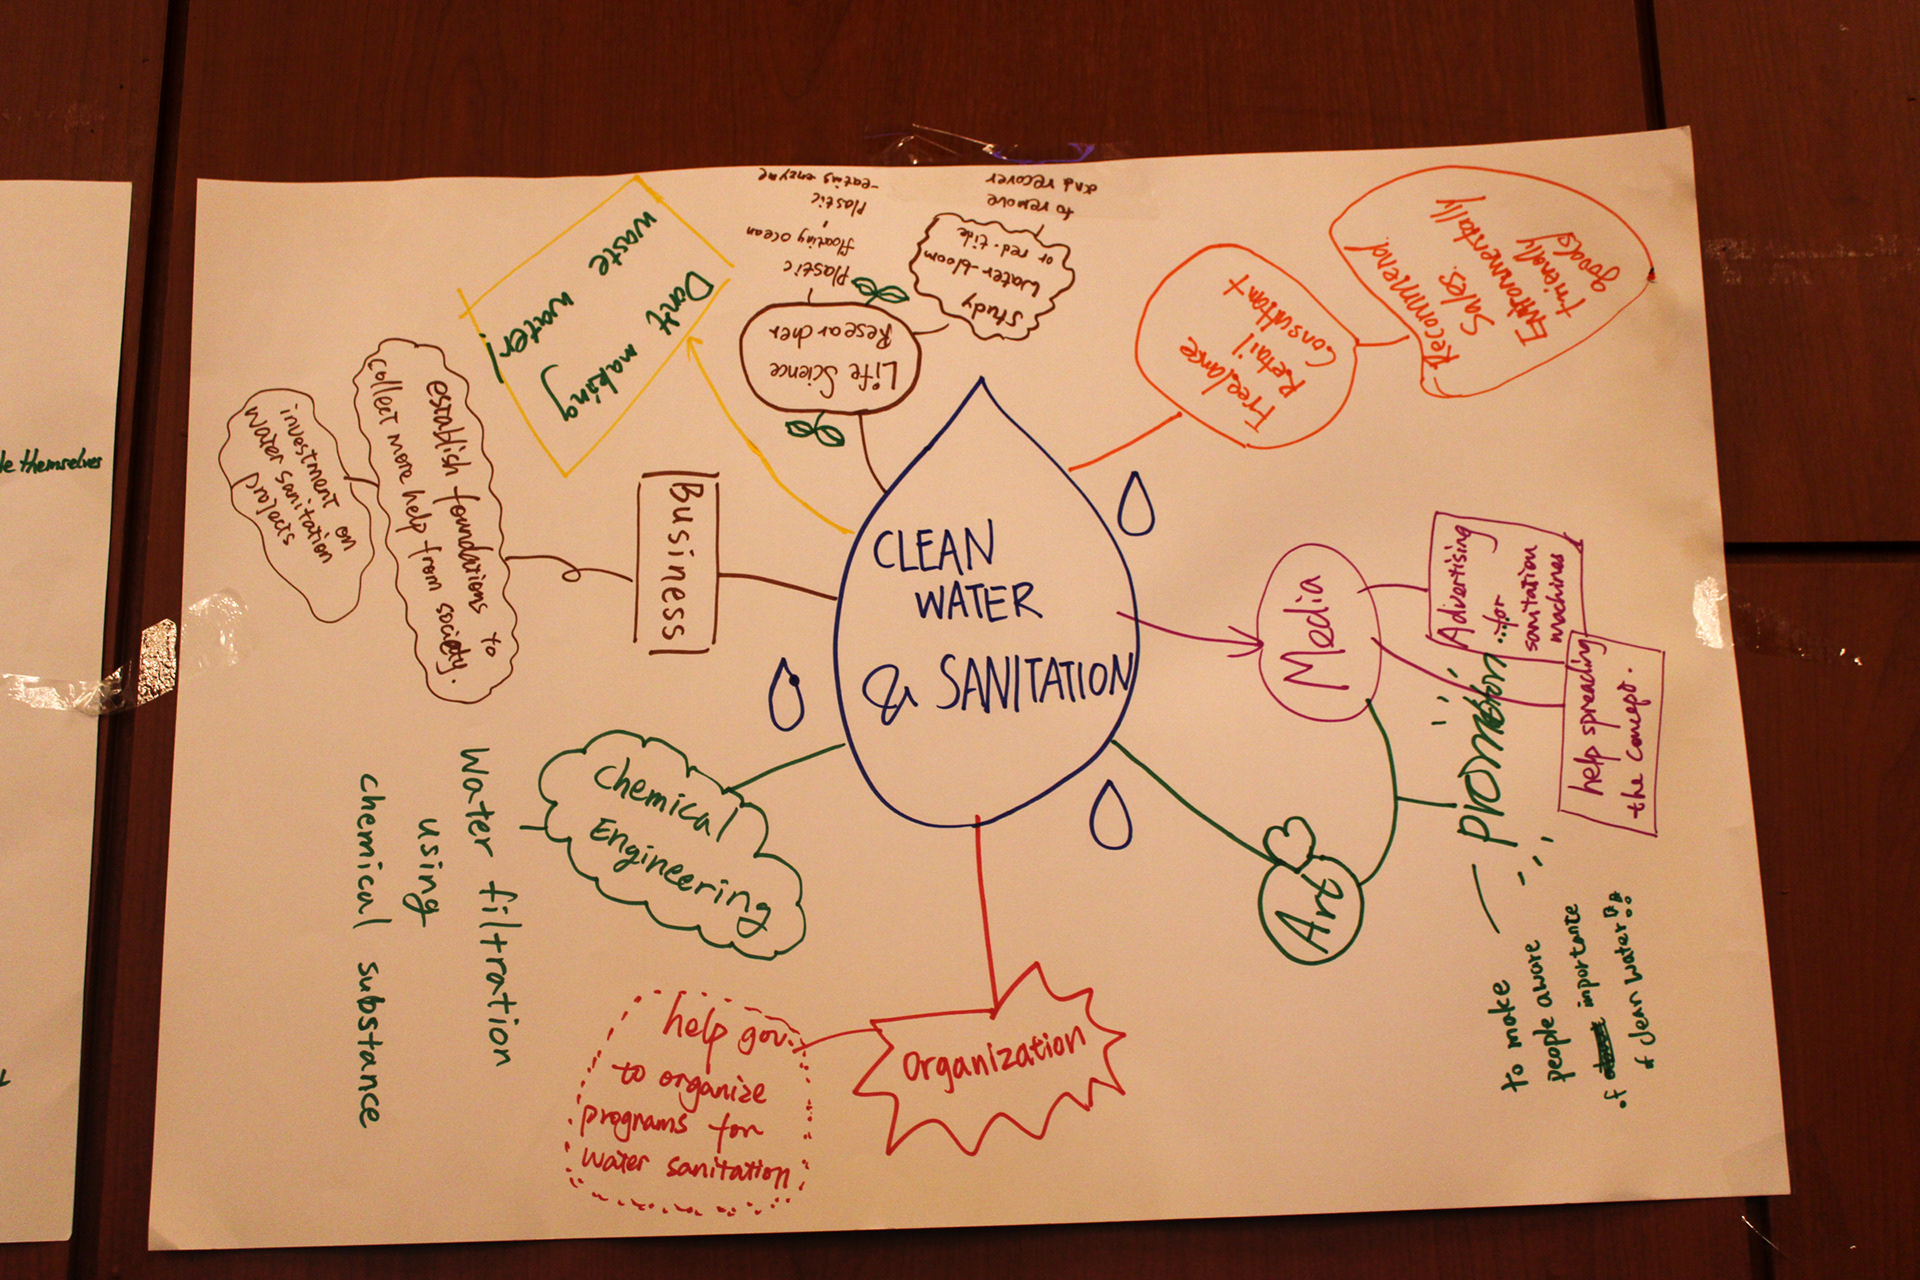 CLEAN
WATER
& SANITATION
Life Science
Researcher
Plastic
floating ocean
Plastic
-eating enzyme
Study
Water-bloom
or red-tide
to remove
and recover
Freelance
Retail
Consultant
Recommend
Sales.
Environmentally
friendly
goods
Media
Advertising
for
sanitation
machines
help spreading
the concept.
Art
promotion
to make
people aware
of inportante
of clean water
Organization
help gov.
to organize
programs for
water sanitation
Chemical
Engineering
Water filtration
using
chemical substance
Business
establish foundations to
collect more help from society.
investment on
water sanitation
projects
Don't making
waste water!
le themselves